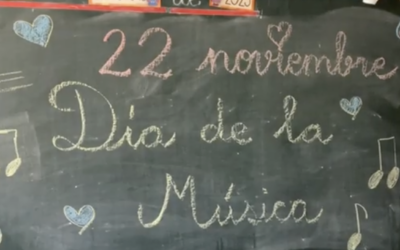 de 2023
22 noviembre
Día de la
Música